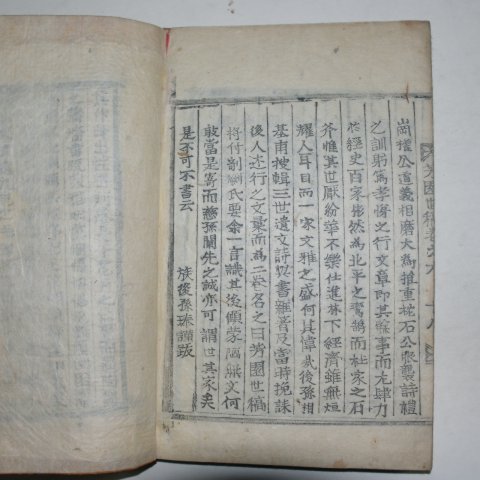 芳園世稿
崗權公道義相磨大為推重枕石公襲詩禮
之訓躬篤孝媚之行文章即其餘事而尢肆力
於經史百家依然為北平之鸞鵠而杜家之石
斧惟其世厭紛華不樂仕進林下經濟雖無烜
耀人耳目而一家文雅之盛何其偉哉後孫相
基甫搜輯三世遺文詩以書雜著及當時挽誄
後人走行之文彙而為二卷名之曰芳園世稿
將付剞劂氏要余一言識其後顧蒙陋䟽文何
敢當是寄而慈孫闡先之誠亦可謂世其家矣
是不可不書云
族後孫瑧讚跋